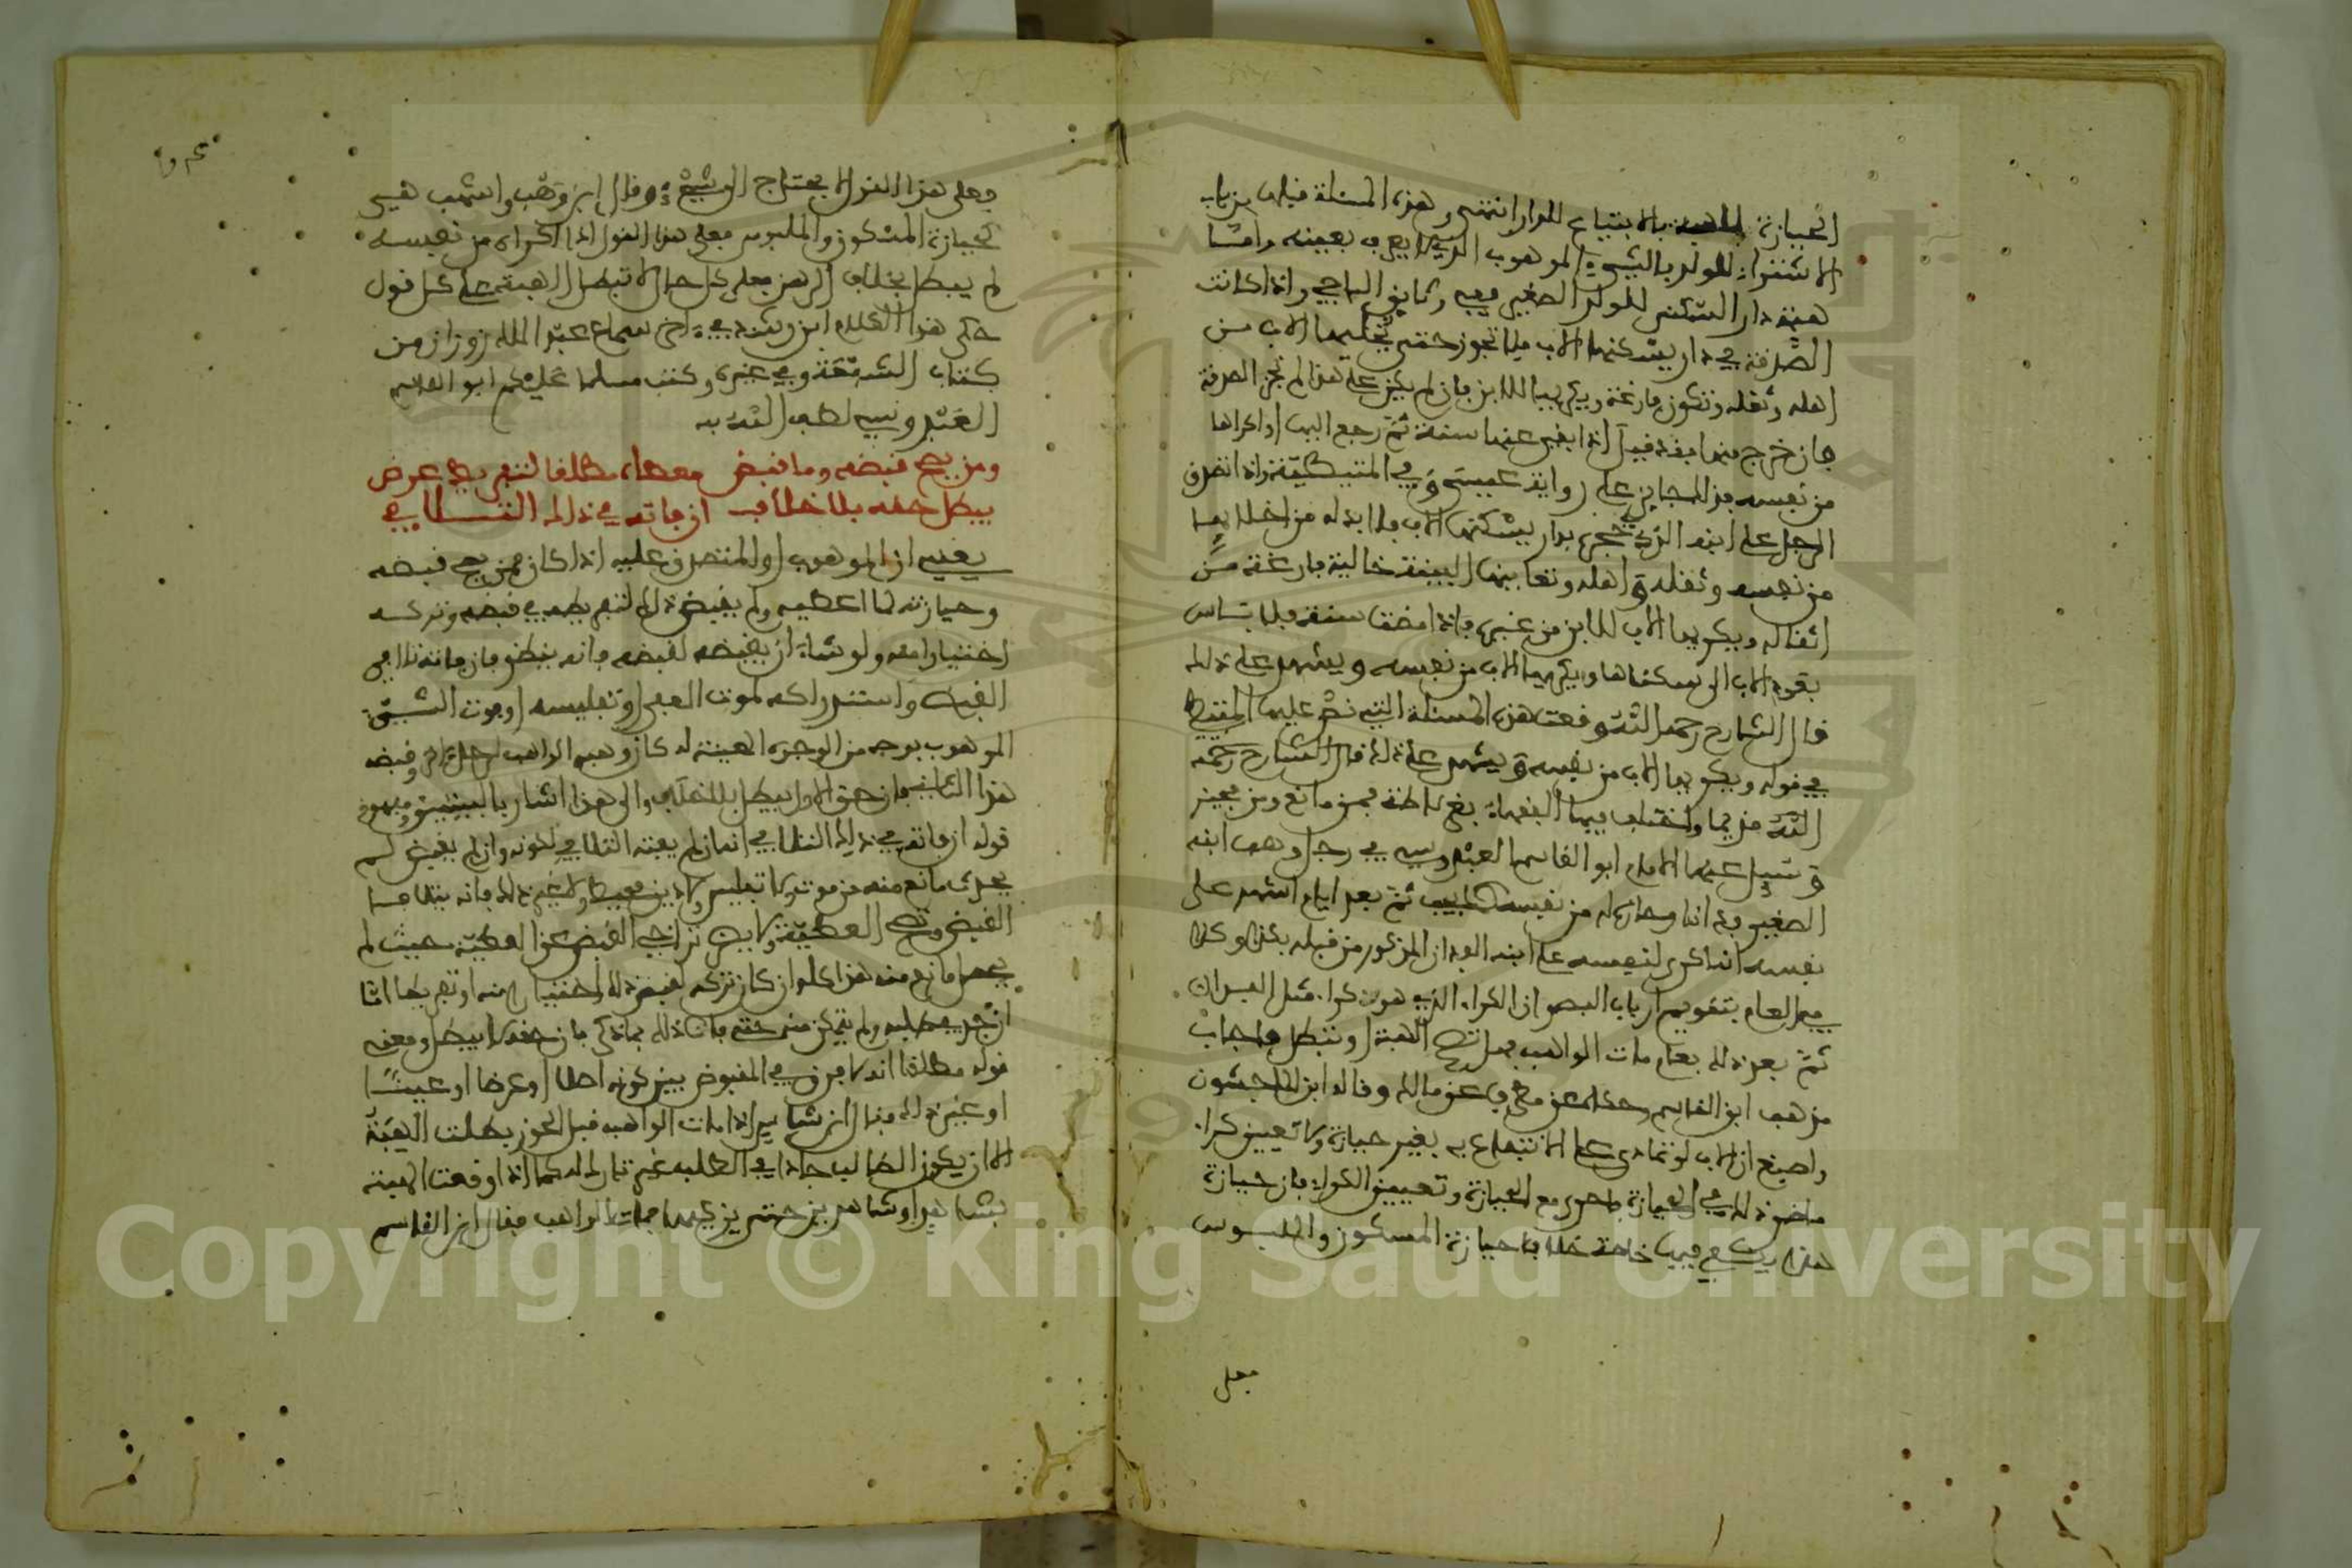 الحيازة بالابتياع للدار انتهى وهذه المسئلة قبلها من باب
الاشتراء للولد بالشيء الموهوب الذي لا يعرف بعينه وامّا
هبة دار السكنى للولد الصغير ففيه وثايق الباجي واذا كانت
الصدقة في دار يسكنها الاب فلا تجوز حتى يخليها الاب من
اهله وثقله وتكون فارغة ويكريها للابن فان لم يكن على هذا لم تجز الصدقة
فان خرج منها
من نفسه رواية عيسى وفي المتيطيّة واذا تصدق
الرجل على ابنه الذي في حجره بدار يسكنها الاب فلا بد له من اخلائها
من نفسه وثقله واهله وتعاينها البينة خالية فارغة من
اثقاله ويكريها الاب للابن من غيره فاذا مضت سنة فلا باس
بعود الاب الى سكناها ويكريها الاب من نفسه ويشهد على ذلك
قال الشارح رحمه اللّه وقعت هذه المسئلة التي نصّ عليها المتيطي
في قوله ويكريها الاب من نفسه ويشهد على ذلك قال الشارح رحمه
اللّه قديما واختلف فيها الفقهاء بغرناطة فمن مانع ومن مجيز
وسيل عنها الامام ابو القاسم العبدوسي في رجل وهب ابنه
الصغير فدانا وحازه له من نفسه ثمّ بعد ايام اشهد على
نفسه انه اكرى لنفسه على ابنه الفدان المذكور من قبله بكذا وكذا
في العام بتقويم ارباب البصر ان الكراء الذي هو كراء مثل الفدان
ثمّ بعد ذلك بعام مات الواهب فهل تصح الهبة او تبطل فاجاب
مذهب ابن القاسم وحكاه عن مطرف عن مالك وقاله ابن الماجشون
واصبغ ان الاب لو تمادى على الانتفاع به بغير حيازة ولا تعيين كراء
ماضر ذلك في الحيازة فاحرى مع الحيازة وتعيين الكراء فان حيازة
هذا يكفي فيها خاصة خلاف حيازة المسكون والملبوس
فعلى
فعلى هذا القول لا يحتاج الى شيء وقال ابن وهب واشهب هي
كحيازة المسكون والملبوس فعلى هذا القول اذا اكراه من نفسه
لم يبطل بخلاف الرهن فعلى كل حال لا تبطل الهبة على كل قول
حكى هذا الكلام ابن رشد في اخر سماع عبد الملك زونان من
كتاب الشفعة وفي غيره وكتب مسلما عليكم ابو القاسم
العبدوسي لطف اللّه به
ومن يصح قبضه وما قبض معطاه مطلقا لتفريط عرض
يبطل حقه بلا خلاف ان فاته في ذلك التلافي
يعني ان الموهوب او المتصدق عليه اذا كان ممن يصح قبضه
وحيازته لما اعطيه ولم يقبض ذلك لتفريطه في قبضه وتركه
اختيارا منه ولو شاء ان يقبضه لقبضه فانه ينظر فان فاته تلافي
القبض واستدراكه لموت المعطي او تفليسه او فوت الشيء
الموهوب بوجه من الوجوه المعينة له كان وهبه الواهب لرجل اخر وقبضه
هذا الثاني فان حق الاول يبطل بلا خلاف والى هذا اشار بالبيتين ومفهوم
قوله ان فاته في ذلك التلافي انه ان لم يفته التلافي لكونه وان لم يقبض لم
يحدث مانع منه من موت ولا تفليس ولا دين محيط ولا غير ذلك فانه يتلافى
القبض وتصح العطيّة ولا يضر تراخي القبض عن العطيّة حيث لم
يحصل مانع منه هذا كله ان كان تركه لقبض ذلك اختيارا منه او تفريطا امّا
ان جدّ في طلبه ولم يتمكن منه حتى فات ذلك بما ذكر فان حقه لا يبطل ومعنى
قوله مطلقا انه لا فرق في المقبوض بين كونه اصلا او عرضا او عينًا
او غير ذلك فقال ابن شاس اذا مات الواهب قبل الحوز بطلت الهبة
الا ان يكون الطالب جادا في الطلب غير تارك له كما اذا وقعت الهبة
بشاهد او شاهدين حتى يزكيهما فمات الواهب فقال ابن القاسم